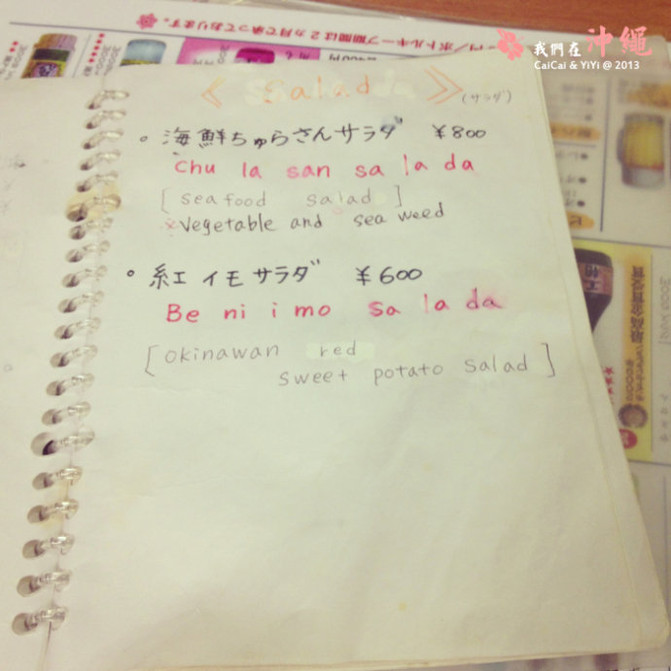 円／ボトルキープ期間は2ヵ月で承っております。
我們在沖繩
CaiCai & YiYi @ 2013
《 Salad 》
(サラダ)
。海鮮ちゅらさんサラダ ¥800
Chu la san sa la da
[ seafood salad ]
※Vegetable and sea weed
。紅イモサラダ ¥600
Be ni imo sa la da
[ okinawan red
sweet potato salad ]
最高金賞受賞